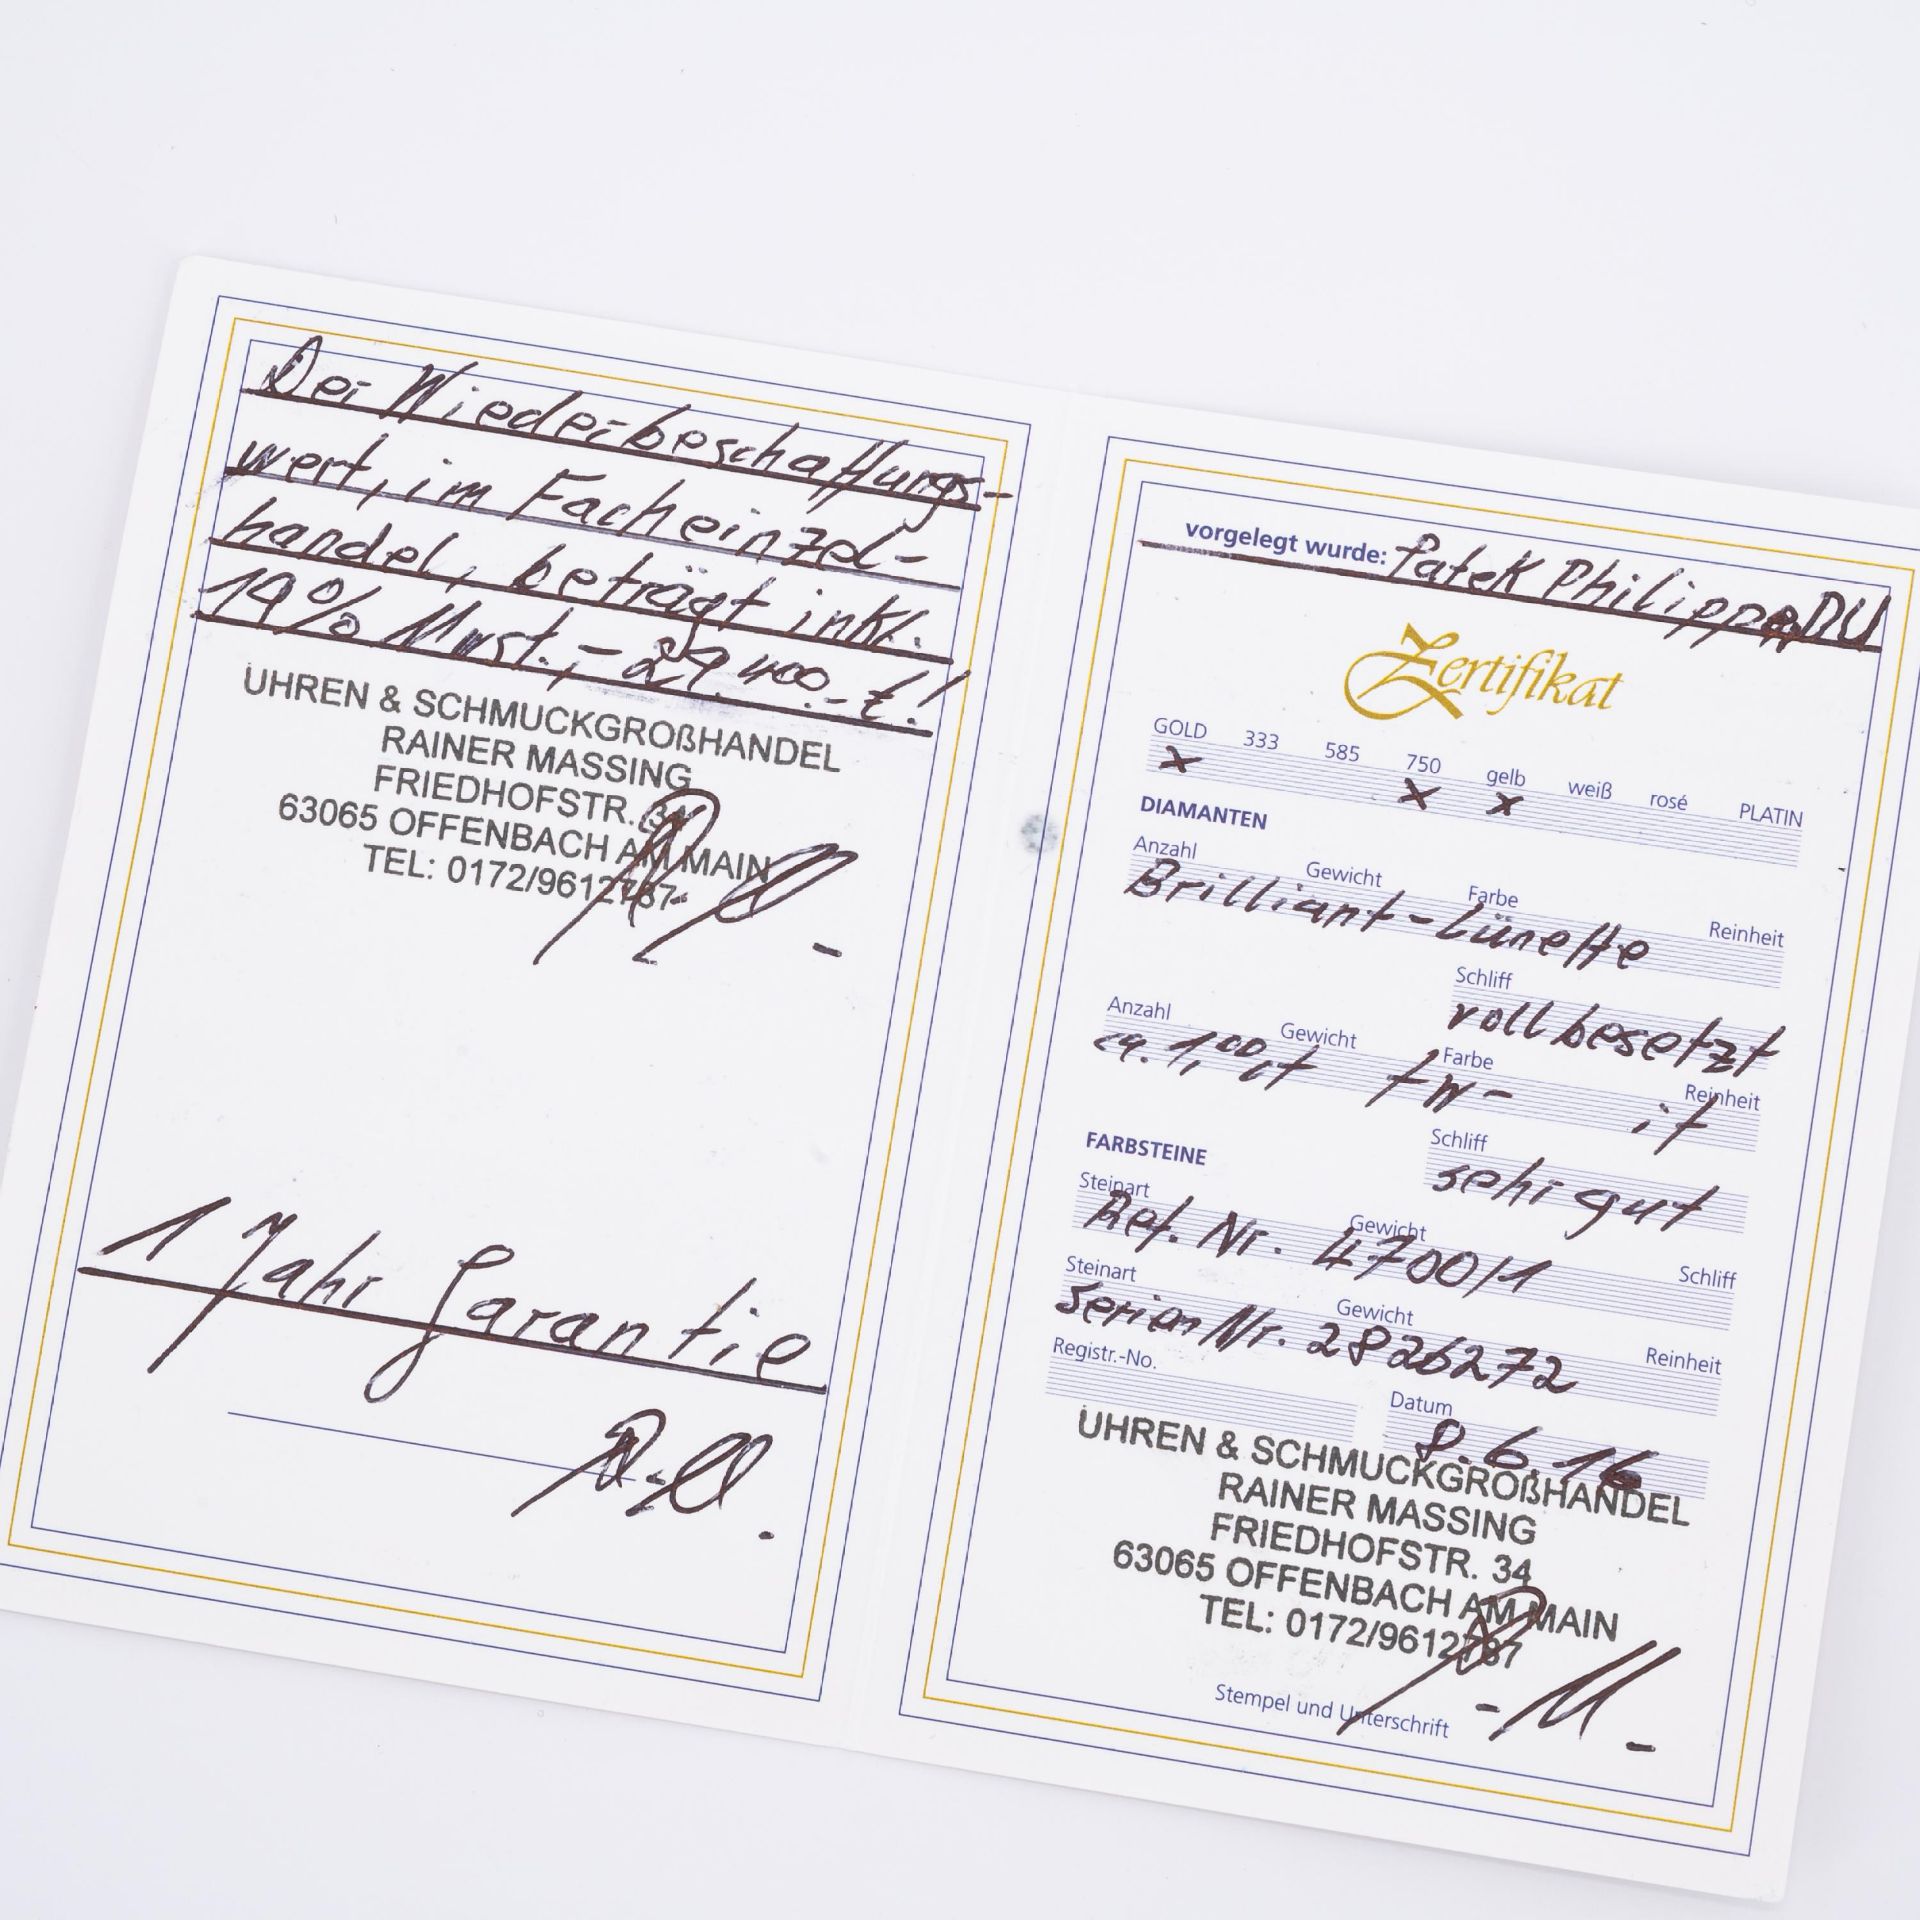 Der Wiederbeschaffungs-
wert, im Facheinzel-
handel, beträgt inkl.
19% Mwst.,- 29.400.- €!
UHREN & SCHMUCKGROßHANDEL
RAINER MASSING
FRIEDHOFSTR. 34
63065 OFFENBACH AM MAIN
TEL: 0172/9612787
1 Jahr Garantie
vorgelegt wurde: Patek Philippe, DU
Zertifikat
GOLD 333 585 750 gelb weiß rosé PLATIN
x x x
DIAMANTEN
Anzahl Gewicht Farbe Reinheit
Brilliant-Lünette
Schliff
vollbesetzt
Anzahl Gewicht Farbe Reinheit
ca. 1,00ct tw- if
Schliff
sehr gut
FARBSTEINE
Steinart Gewicht Schliff
Ref. Nr. 4700/1
Steinart Gewicht Reinheit
Serien Nr. 2826272
Registr.-No. Datum
8.6.16
UHREN & SCHMUCKGROßHANDEL
RAINER MASSING
FRIEDHOFSTR. 34
63065 OFFENBACH AM MAIN
TEL: 0172/9612787
Stempel und Unterschrift